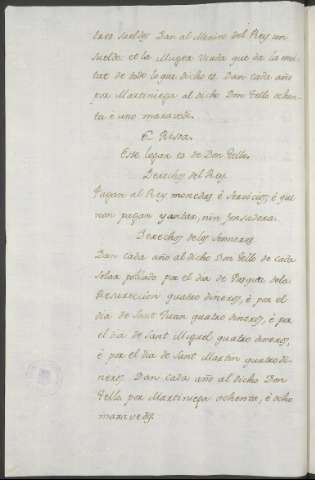 tres sueldos Dan al Merino del Rey un
sueldo et la Muger Viuda que da la mi-
tat de todo lo que dicho es. Dan cada año
por Martiniega al dicho Don Tello ochen-
ta e uno maravedis.
Este logar es de Don Tello.
Derechos del Rey.
Pagan al Rey monedas, é Servicios, é que
non pagan yantar, nin fonsadera.
Derechos de los Señores.
Dan cada año al dicho Don Tello de cada
Solar poblado por el dia de Pasqua de la
Resureccion quatro dineros, é por el
dia de Sant Juan quatro dineros, é por
el dia de Sant Miguel quatro dineros,
é por el dia de Sant Martin quatro di-
neros. Dan cada año al dicho Don
Tello por Martiniega ochenta, é ocho
maravedis.